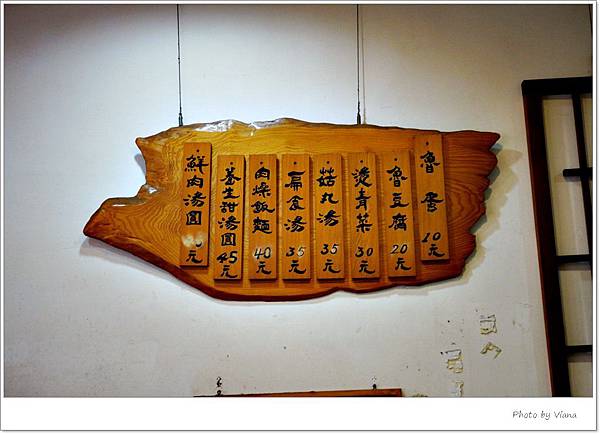 魯蛋 10元
魯豆腐 20元
燙青菜 30元
菇丸湯 35元
扁食湯 35元
肉燥飯麵 40元
養生甜湯圓 45元
鮮肉湯圓 元
Photo by Viana